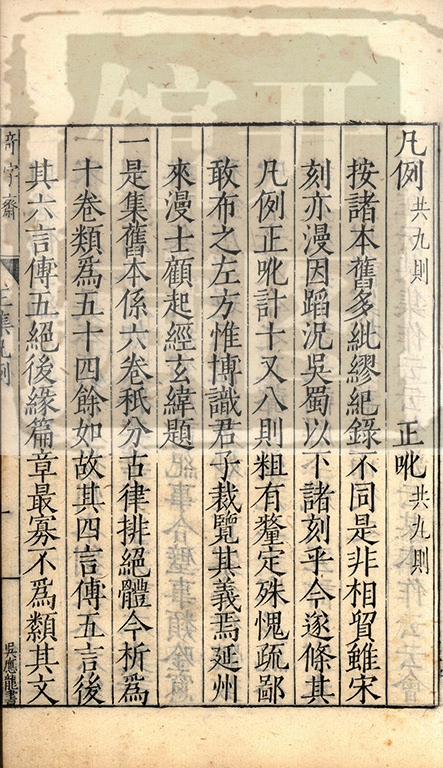 凡例 共九則 正吪 共九則
按諸本舊多紕繆紀錄不同是非相貿雖宋
刻亦漫因蹈況吳蜀以下諸刻乎今遂條其
凡例正吪計十又八則粗有釐定殊愧疏鄙
敢布之左方惟博識君子裁覽其義焉延州
來漫士顧起經玄緯題
一是集舊本係六卷秖分古律排絕體今析爲
十卷類爲五十四餘如故其四言傳五言後
其六言傳五絕後緣篇章最寡不爲纇其文
奇字齋
凡例
一
吳應龍書